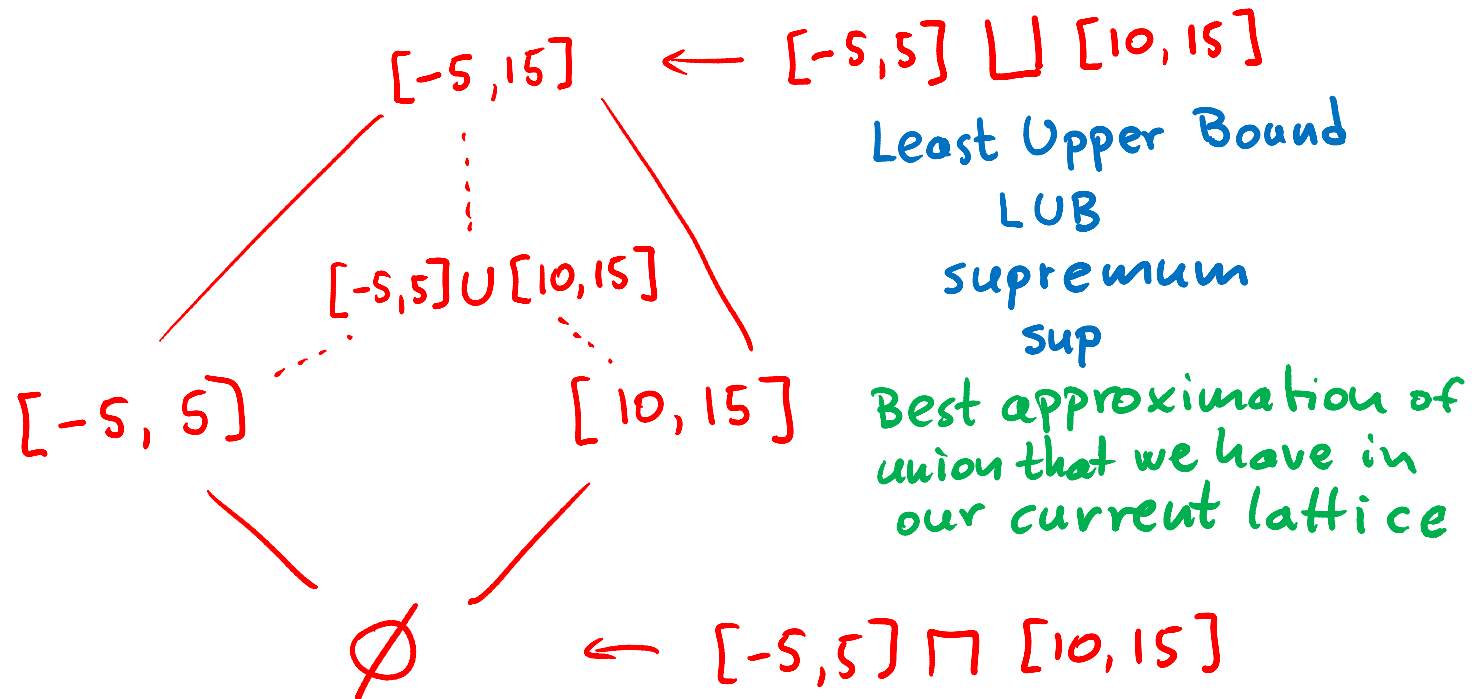 [-5,15] ← [-5,5] ⊔ [10,15]
Least Upper Bound
LUB
[-5,5]∪[10,15]
supremum
sup
[-5, 5)
[10,15]
Best approximation of
union that we have in
our current lattice
∅ ← [-5,5] ⊓ [10,15]